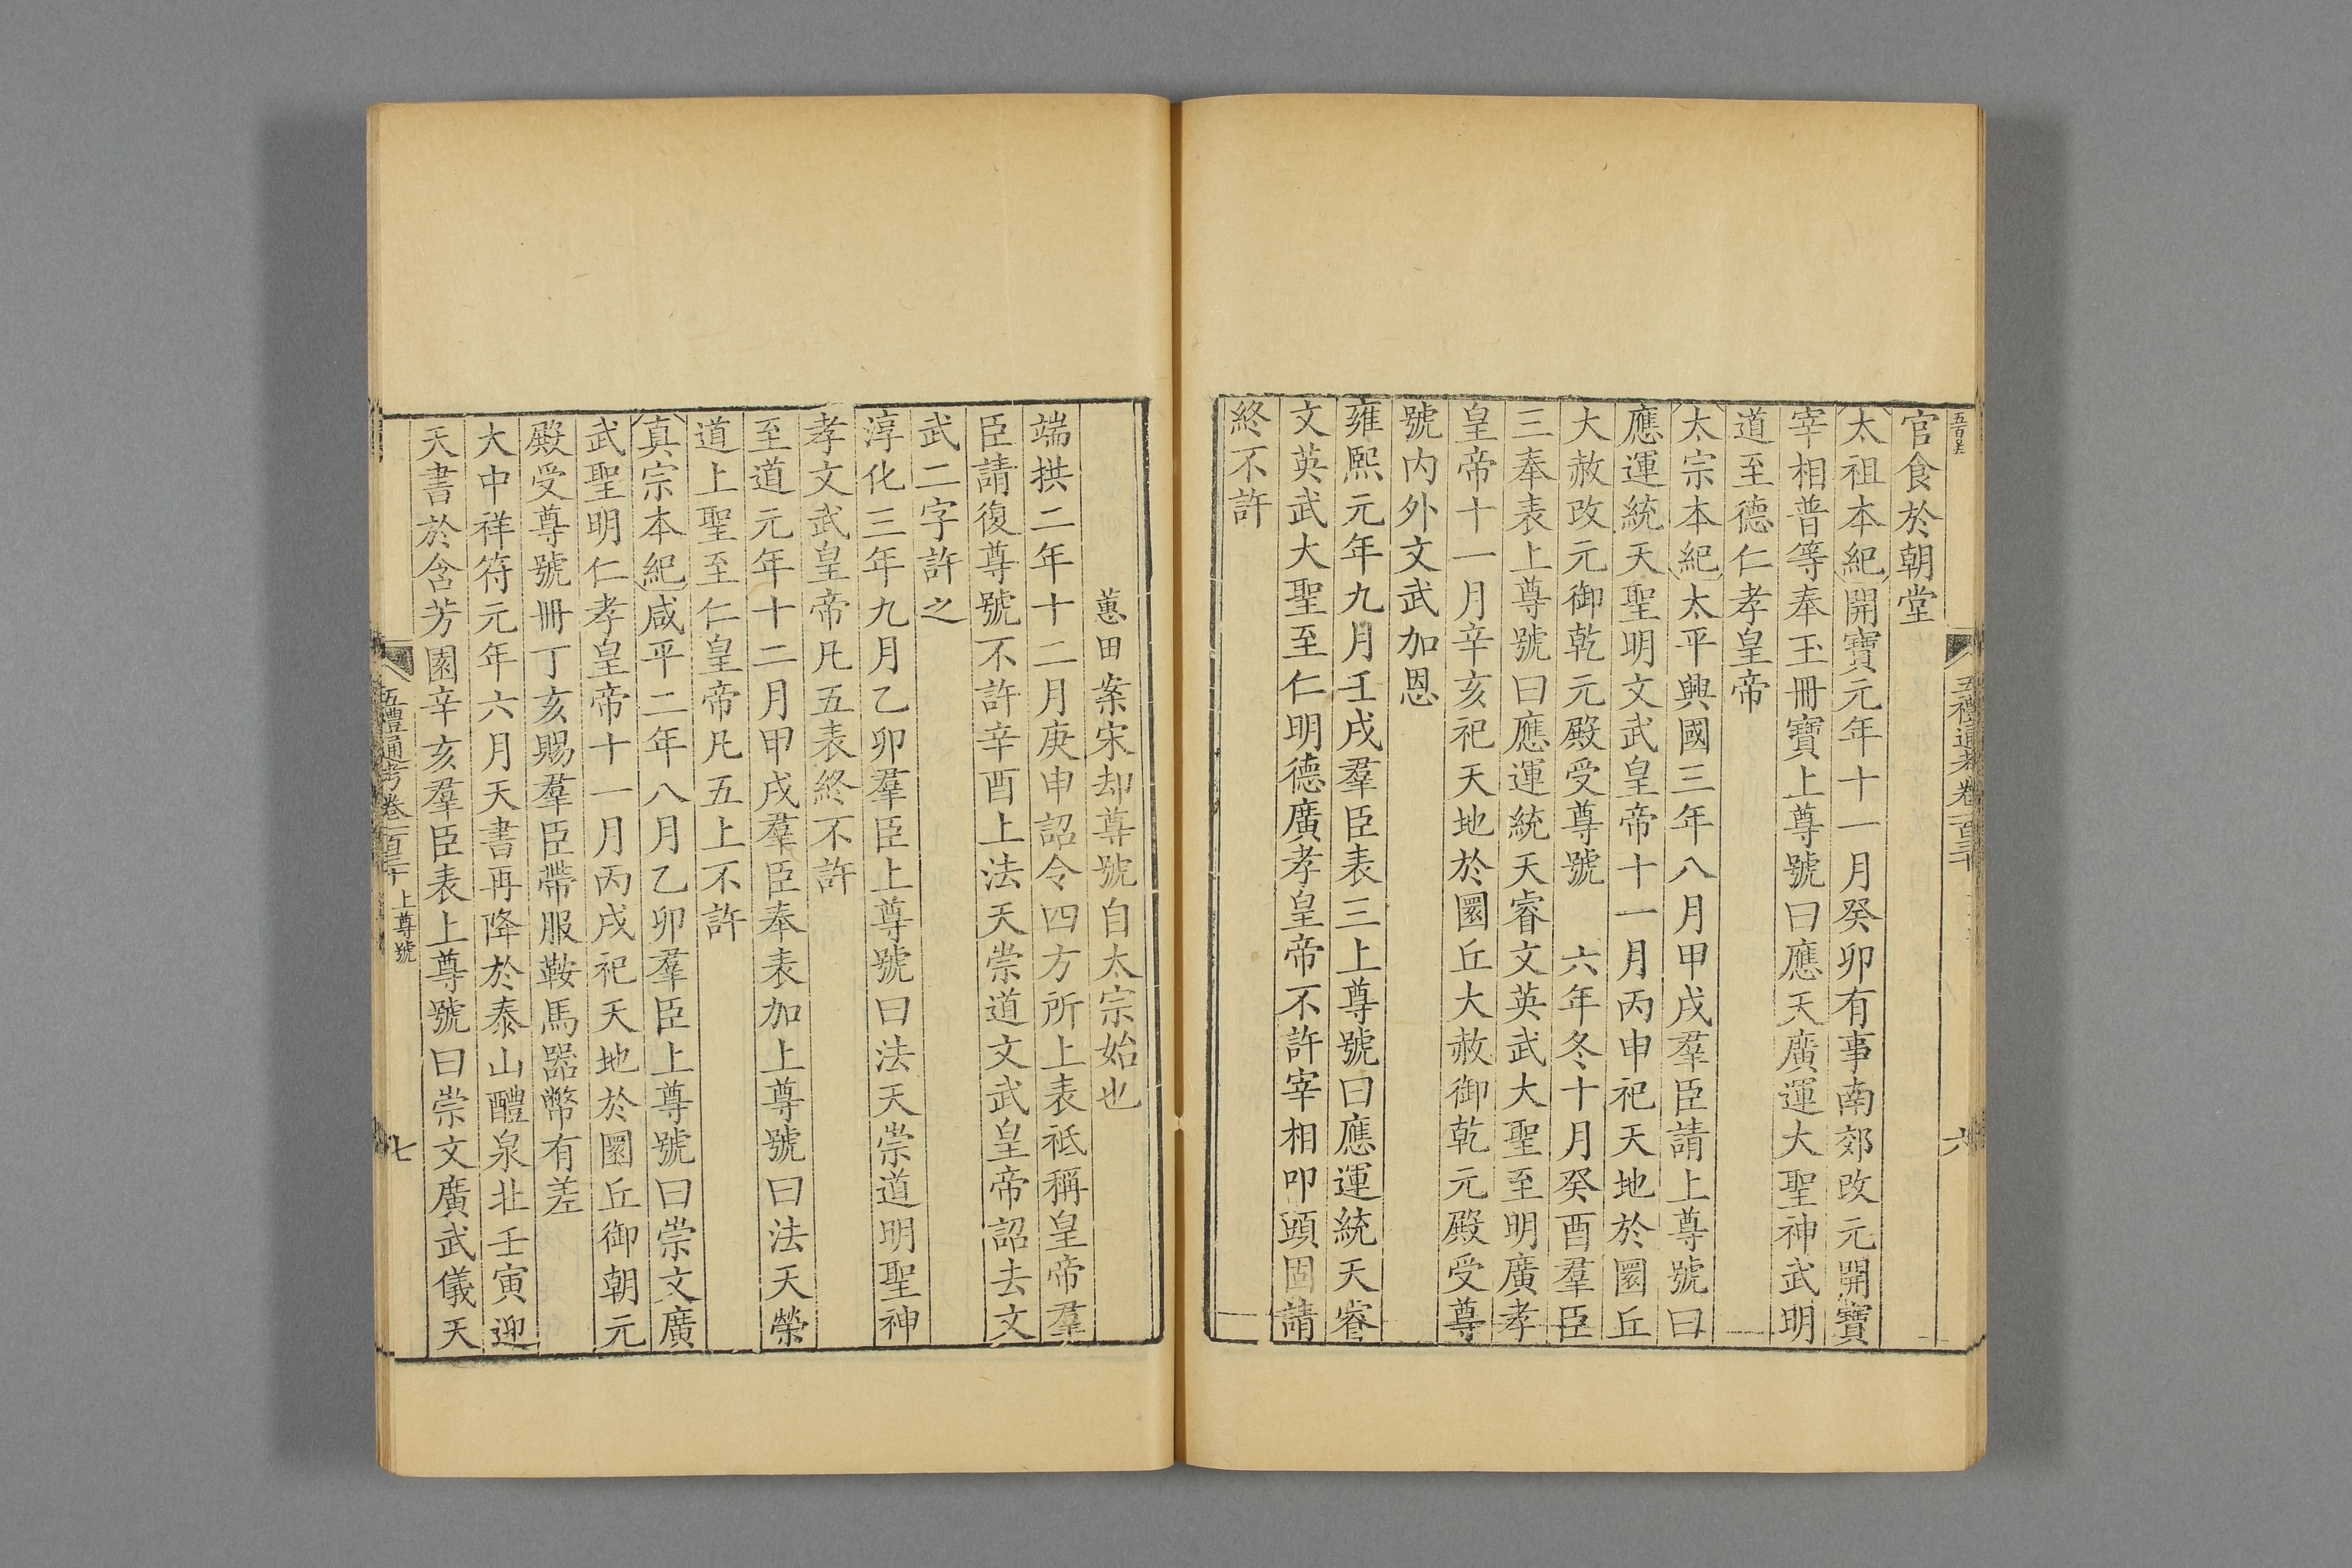 官食於朝堂
太祖本紀開寶元年十一月癸卯有事南郊改元開寶
宰相普等奉玉冊寶上尊號曰應天廣運大聖神武明
道至德仁孝皇帝
太宗本紀太平興國三年八月甲戌羣臣請上尊號曰
應運統天聖明文武皇帝十一月丙申祀天地於圜丘
大赦改元御乾元殿受尊號　六年冬十月癸酉羣臣
三奉表上尊號曰應運統天睿文英武大聖至明廣孝
皇帝十一月辛亥祀天地於圜丘大赦御乾元殿受尊
號内外文武加恩
雍熙元年九月壬戌羣臣表三上尊號曰應運統天睿
文英武大聖至仁明德廣孝皇帝不許宰相叩頭固請
終不許
五禮通考卷一百三十
六
蕙田案宋却尊號自太宗始也
端拱二年十二月庚申詔令四方所上表祗稱皇帝羣
臣請復尊號不許辛酉上法天崇道文武皇帝詔去文
武二字許之
淳化三年九月乙卯羣臣上尊號曰法天崇道明聖神
孝文武皇帝凡五表終不許
至道元年十二月甲戌羣臣奉表加上尊號曰法天崇
道上聖至仁皇帝凡五上不許
真宗本紀咸平二年八月乙卯羣臣上尊號曰崇文廣
武聖明仁孝皇帝十一月丙戌祀天地於圜丘御朝元
殿受尊號冊丁亥賜羣臣帶服鞍馬器幣有差
大中祥符元年六月天書再降於泰山醴泉北壬寅迎
天書於含芳園辛亥羣臣表上尊號曰崇文廣武儀天
五禮通考卷一百三十　上尊號
七